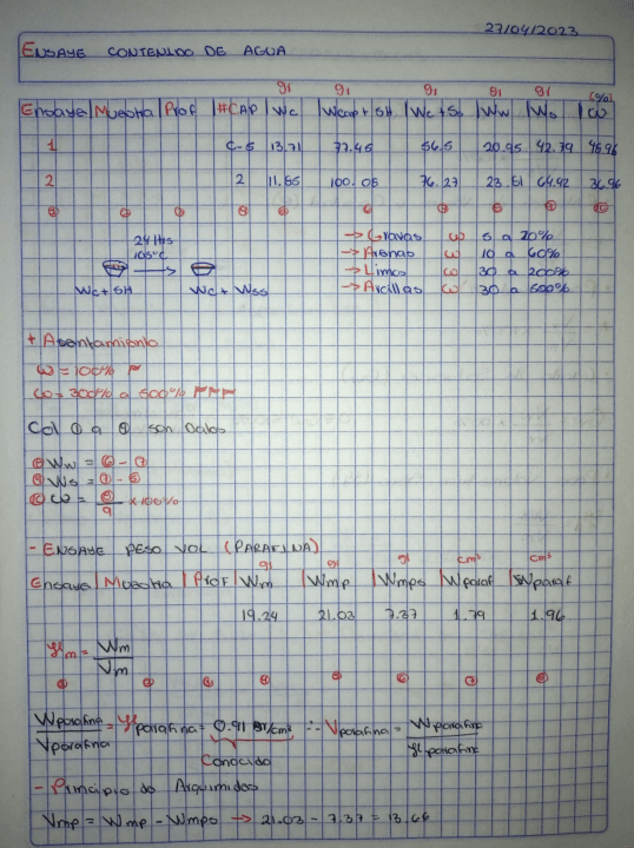 27/04/2023
ENSAYE CONTENIDO DE AGUA
gr gr gr gr gr (%)
Ensaye Muestra Prof #CAP Wc Wcap+SH Wc+Ss Ww Ws ω
1 C-5 13.71 77.45 56.5 20.95 42.79 48.96
2 2 11.85 100.08 76.27 23.81 64.42 36.96
1 2 3 4 5 6 7 8 9 10
24 Hrs
105°C
→ Gravas ω 5 a 20%
→ Arenas ω 10 a 60%
→ Limos ω 30 a 200%
→ Arcillas ω 30 a 600%
Wc+SH Wc+Wss
+ Asentamiento
ω = 100%
ω = 300% a 500%
Col ① a ⑦ son Datos
⑧ Ww = ⑥ - ⑦
⑨ Ws = ⑦ - ⑤
⑩ ω = ⑧/9 x100%
- ENSAYE PESO VOL (PARAFINA)
gr gr gr cm³ cm³
Ensaye Muestra Prof Wm Wmp Wmps Wparaf Wparaf
19.24 21.03 7.37 1.79 1.96
γm = Wm/Vm
1 2 3 4 5 6 7 8
Wparafina/Vparafina = γparafina = 0.91 gr/cm³ ∴ Vparafina = Wparafina/γparafina
Conocido
- Principio de Arquimides
Vmp = Wmp - Wmps → 21.03 - 7.37 = 13.66